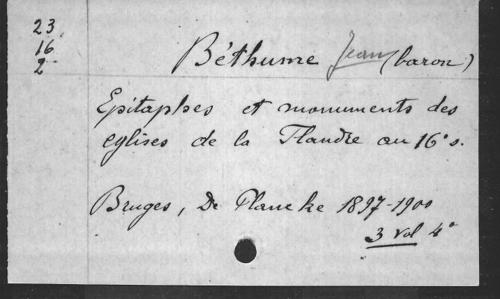 23
16
2
Béthume Jean (baron)
Epitaphes et monuments des
eglises de la Flandre au 16e s.
Bruges, De Plancke 1897-1900
3 vol 4°